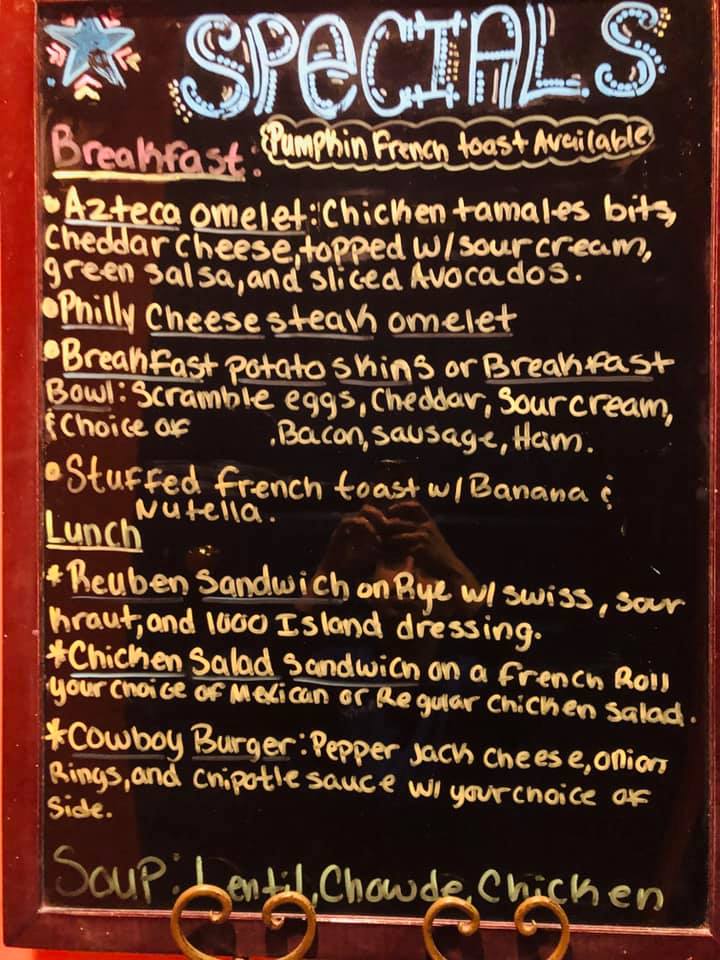 SPECIALS
Breakfast:
Pumpkin French toast Available
• Azteca omelet: Chicken tamales bits,
cheddar cheese, topped w/ sour cream,
green salsa, and sliced Avocados.
• Philly Cheese steak omelet
• Breakfast potato skins or Breakfast
Bowl: Scramble eggs, Cheddar, Sour cream,
& Choice of .Bacon, sausage, Ham.
• Stuffed french toast w/ Banana &
Nutella.
Lunch
* Reuben Sandwich on Rye w/ swiss, sour
kraut, and 1000 Island dressing.
* Chicken Salad Sandwich on a french Roll
your choice of Mexican or Regular Chicken Salad.
* Cowboy Burger: Pepper Jack cheese, onion
Rings, and chipotle sauce w/ your choice of
side.
Soup: Lentil, Chowde, Chicken